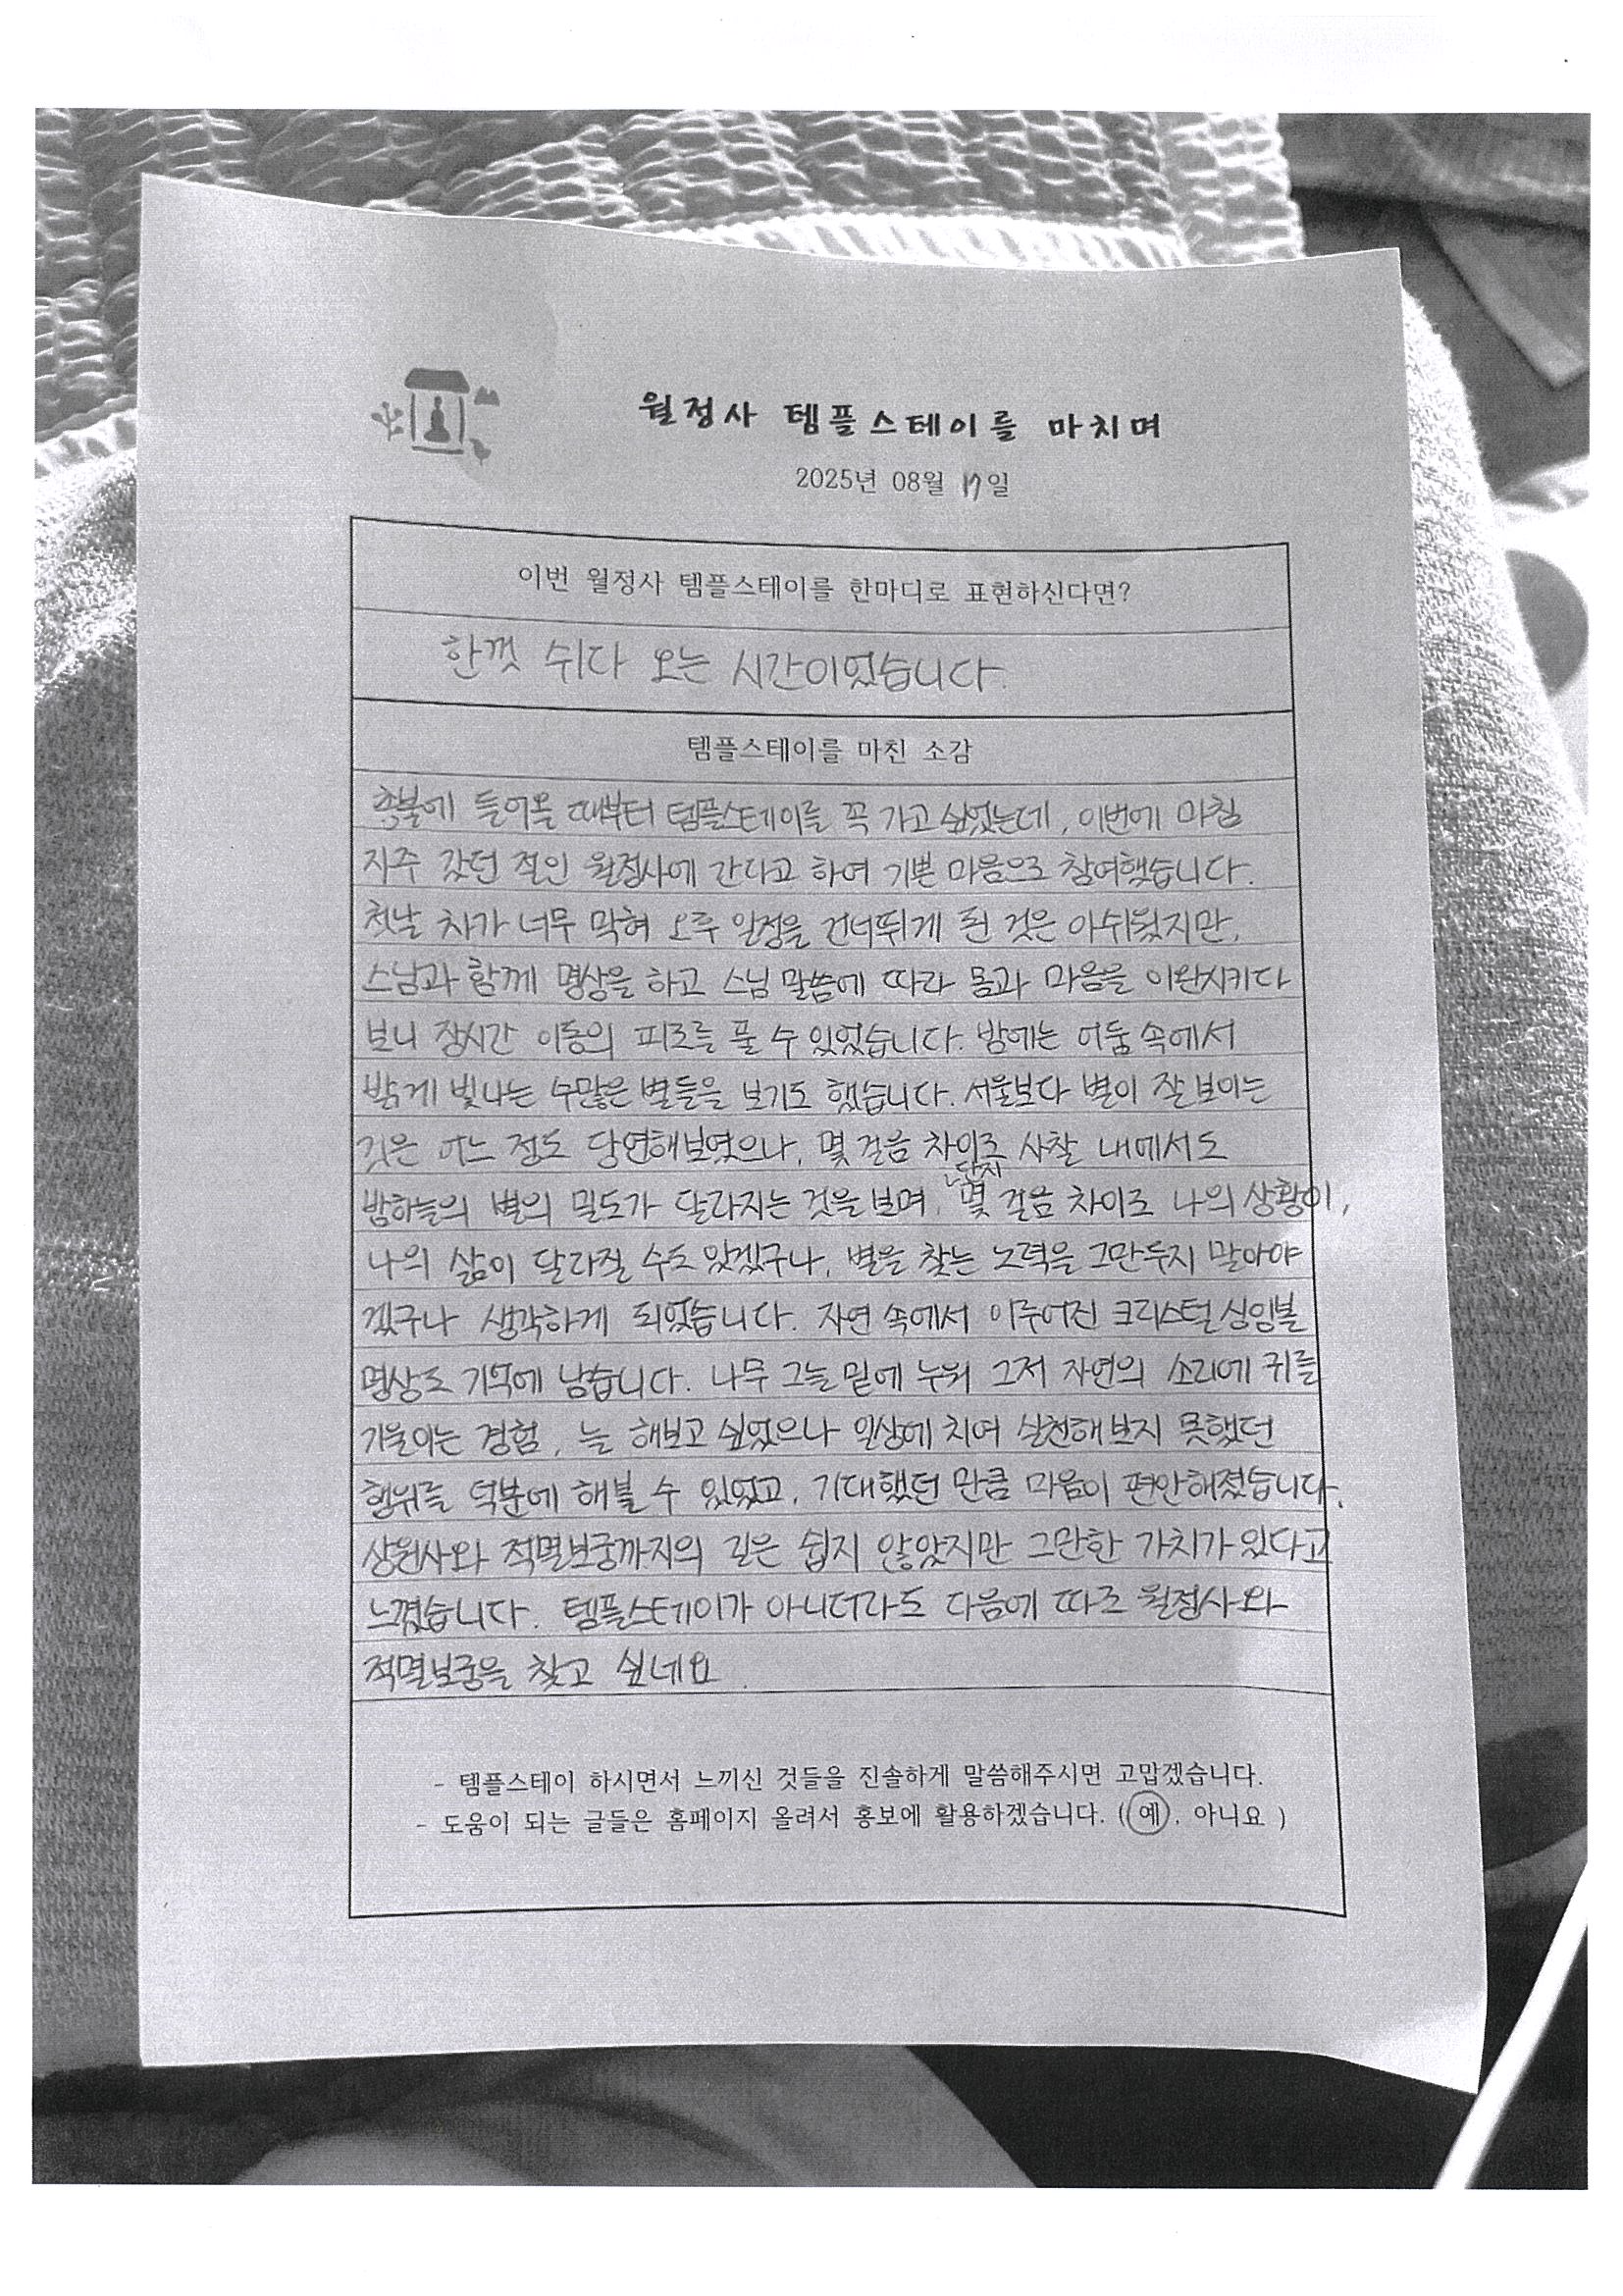 월정사 템플스테이를 마치며
2025년 08월 17일
이번 월정사 템플스테이를 한마디로 표현하신다면?
한껏 쉬다 오는 시간이었습니다.
템플스테이를 마친 소감
총불에 들어올 때부터 템플스테이를 꼭 가고 싶었는데, 이번에 마침
자주 갔던 절인 월정사에 간다고 하여 기쁜 마음으로 참여했습니다.
첫날 차가 너무 막혀 오후 일정을 건너뛰게 된 것은 아쉬웠지만,
스님과 함께 명상을 하고 스님 말씀에 따라 몸과 마음을 이완시키다
보니 장시간 이동의 피로를 풀 수 있었습니다. 밤에는 어둠 속에서
밝게 빛나는 수많은 별들을 보기도 했습니다. 서울보다 별이 잘 보이는
것은 어느 정도 당연해보였으나, 몇 걸음 차이로 사찰 내에서도
밤하늘의 별의 밀도가 달라지는 것을 보며, 단지 몇 걸음 차이로 나의 상황이,
나의 삶이 달라질 수도 있겠구나, 별을 찾는 노력을 그만두지 말아야
겠구나 생각하게 되었습니다. 자연 속에서 이루어진 크리스털 싱잉볼
명상도 기억에 남습니다. 나무 그늘 밑에 누워 그저 자연의 소리에 귀를
기울이는 경험, 늘 해보고 싶었으나 일상에 치여 실천해보지 못했던
행위를 덕분에 해볼 수 있었고, 기대했던 만큼 마음이 편안해졌습니다.
상원사와 적멸보궁까지의 길은 쉽지 않았지만 그만한 가치가 있다고
느꼈습니다. 템플스테이가 아니더라도 다음에 따로 월정사와
적멸보궁을 찾고 싶네요.
- 템플스테이 하시면서 느끼신 것들을 진솔하게 말씀해주시면 고맙겠습니다.
- 도움이 되는 글들은 홈페이지 올려서 홍보에 활용하겠습니다. ( 예 , 아니요 )